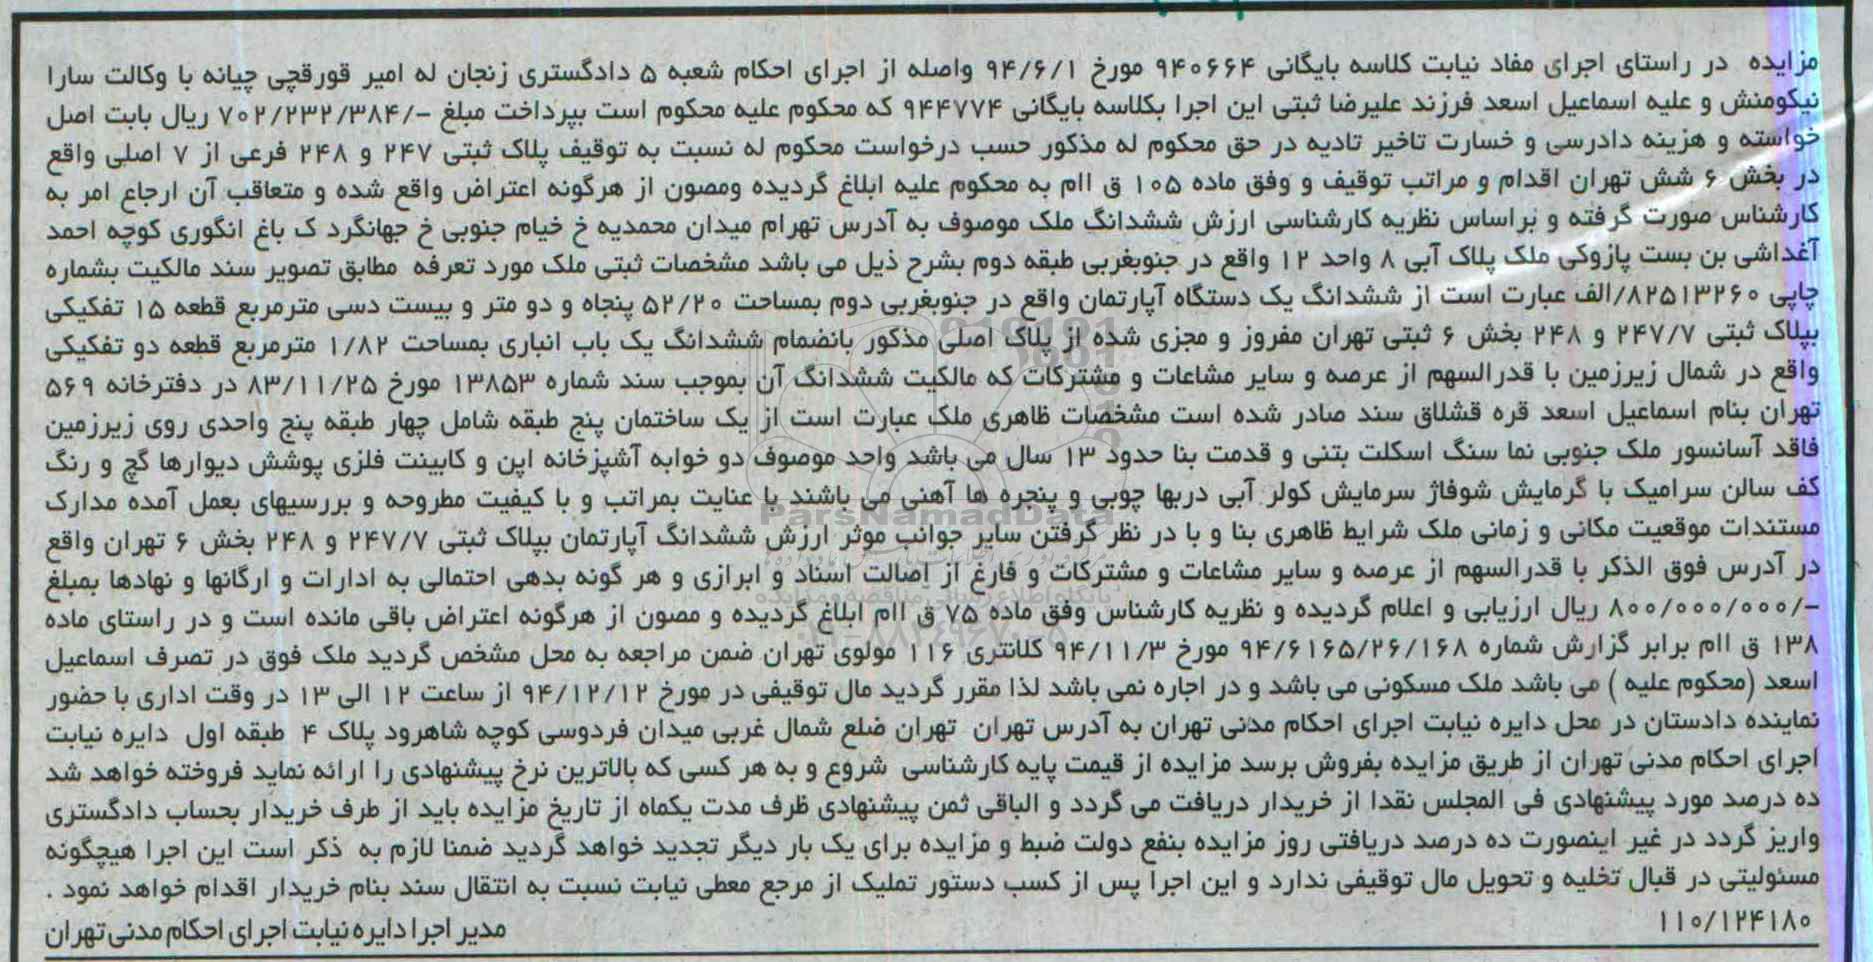 مزایده در راستای اجرای مفاد نیابت کلاسه بایگانی ۹۴۰۶۶۴ مورخ ۹۴/۶/۱ واصله از اجرای احکام شعبه ۵ دادگستری زنجان له امیر قورقچی چیانه با وکالت سارا
نیکومنش و علیه اسماعیل اسعد فرزند علیرضا ثبتی این اجرا بکلاسه بایگانی ۹۴۴۷۷۴ که محکوم علیه محکوم است بپرداخت مبلغ -/۷۰۲/۲۳۲/۳۸۴ ریال بابت اصل
خواسته و هزینه دادرسی و خسارت تاخیر تادیه در حق محکوم له مذکور حسب درخواست محکوم له نسبت به توقیف پلاک ثبتی ۲۴۷ و ۲۴۸ فرعی از ۷ اصلی واقع
در بخش ۶ شش تهران اقدام و مراتب توقیف و وفق ماده ۱۰۵ ق اام به محکوم علیه ابلاغ گردیده ومصون از هرگونه اعتراض واقع شده و متعاقب آن ارجاع امر به
کارشناس صورت گرفته و براساس نظریه کارشناسی ارزش ششدانگ ملک موصوف به آدرس تهرام میدان محمدیه خ خیام جنوبی خ جهانگرد ک باغ انگوری کوچه احمد
آغداشی بن بست پازوکی ملک پلاک آبی ۸ واحد ۱۲ واقع در جنوبغربی طبقه دوم بشرح ذیل می باشد مشخصات ثبتی ملک مورد تعرفه مطابق تصویر سند مالکیت بشماره
چاپی ۸۲۵۱۳۲۶۰/الف عبارت است از ششدانگ یک دستگاه آپارتمان واقع در جنوبغربی دوم بمساحت ۵۲/۲۰ پنجاه و دو متر و بیست دسی مترمربع قطعه ۱۵ تفکیکی
بپلاک ثبتی ۲۴۷/۷ و ۲۴۸ بخش ۶ ثبتی تهران مفروز و مجزی شده از پلاک اصلی مذکور بانضمام ششدانگ یک باب انباری بمساحت ۱/۸۲ مترمربع قطعه دو تفکیکی
واقع در شمال زیرزمین با قدرالسهم از عرصه و سایر مشاعات و مشترکات که مالکیت ششدانگ آن بموجب سند شماره ۱۳۸۵۳ مورخ ۸۳/۱۱/۲۵ در دفترخانه ۵۶۹
تهران بنام اسماعیل اسعد قره قشلاق سند صادر شده است مشخصات ظاهری ملک عبارت است از یک ساختمان پنج طبقه شامل چهار طبقه پنج واحدی روی زیرزمین
فاقد آسانسور ملک جنوبی نما سنگ اسکلت بتنی و قدمت بنا حدود ۱۳ سال می باشد واحد موصوف دو خوابه آشپزخانه اپن و کابینت فلزی پوشش دیوارها گچ و رنگ
کف سالن سرامیک با گرمایش شوفاژ سرمایش کولر آبی دربها چوبی و پنجره ها آهنی می باشند با عنایت بمراتب و با کیفیت مطروحه و بررسیهای بعمل آمده مدارک
مستندات موقعیت مکانی و زمانی ملک شرایط ظاهری بنا و با در نظر گرفتن سایر جوانب موثر ارزش ششدانگ آپارتمان بپلاک ثبتی ۲۴۷/۷ و ۲۴۸ بخش ۶ تهران واقع
در آدرس فوق الذکر با قدرالسهم از عرصه و سایر مشاعات و مشترکات و فارغ از اصالت اسناد و ابرازی و هر گونه بدهی احتمالی به ادارات و ارگانها و نهادها بمبلغ
-/۸۰۰/۰۰۰/۰۰۰ ریال ارزیابی و اعلام گردیده و نظریه کارشناس وفق ماده ۷۵ ق اام ابلاغ گردیده و مصون از هرگونه اعتراض باقی مانده است و در راستای ماده
۱۳۸ ق اام برابر گزارش شماره ۹۴/۶۱۶۵/۲۶/۱۶۸ مورخ ۹۴/۱۱/۳ کلانتری ۱۱۶ مولوی تهران ضمن مراجعه به محل مشخص گردید ملک فوق در تصرف اسماعیل
اسعد (محکوم علیه ) می باشد ملک مسکونی می باشد و در اجاره نمی باشد لذا مقرر گردید مال توقیفی در مورخ ۹۴/۱۲/۱۲ از ساعت ۱۲ الی ۱۳ در وقت اداری با حضور
نماینده دادستان در محل دایره نیابت اجرای احکام مدنی تهران به آدرس تهران تهران ضلع شمال غربی میدان فردوسی کوچه شاهرود پلاک ۴ طبقه اول دایره نیابت
اجرای احکام مدنی تهران از طریق مزایده بفروش برسد مزایده از قیمت پایه کارشناسی شروع و به هر کسی که بالاترین نرخ پیشنهادی را ارائه نماید فروخته خواهد شد
ده درصد مورد پیشنهادی فی المجلس نقدا از خریدار دریافت می گردد و الباقی ثمن پیشنهادی ظرف مدت یکماه از تاریخ مزایده باید از طرف خریدار بحساب دادگستری
واریز گردد در غیر اینصورت ده درصد دریافتی روز مزایده بنفع دولت ضبط و مزایده برای یک بار دیگر تجدید خواهد گردید ضمنا لازم به ذکر است این اجرا هیچگونه
مسئولیتی در قبال تخلیه و تحویل مال توقیفی ندارد و این اجرا پس از کسب دستور تملیک از مرجع معطی نیابت نسبت به انتقال سند بنام خریدار اقدام خواهد نمود .
۱۱۰/۱۲۴۱۸۰
مدیر اجرا دایره نیابت اجرای احکام مدنی تهران
ParsNamadData